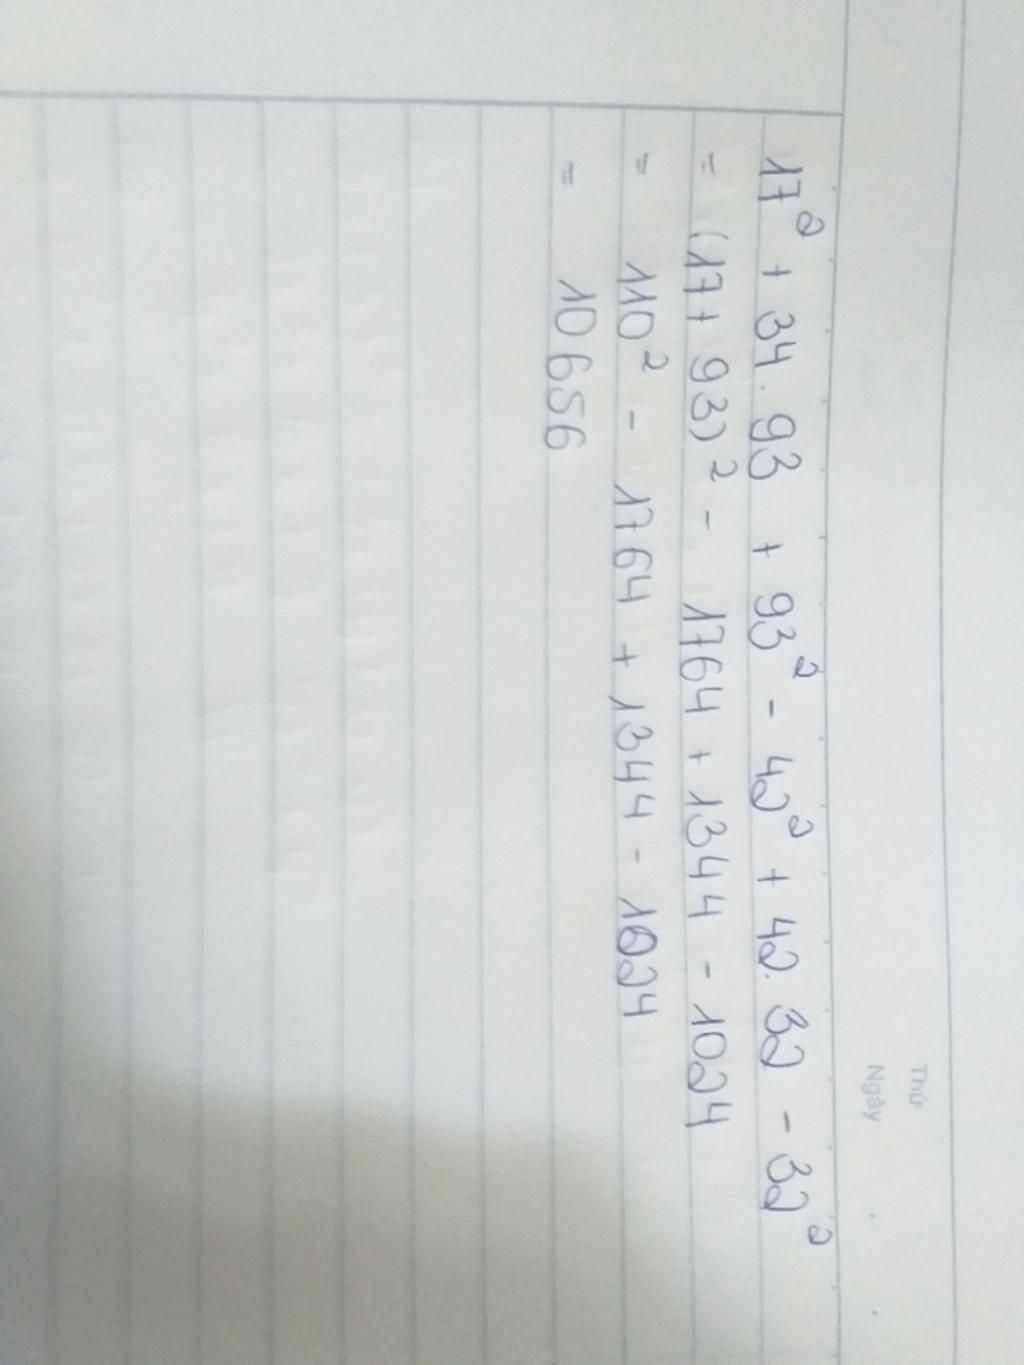 Thứ
Ngày
17² + 34. 93 + 93² - 42² + 42. 32 - 32²
= (17+ 93)² - 1764 + 1344 - 1024
= 110² - 1764 + 1344 - 1024
= 10656